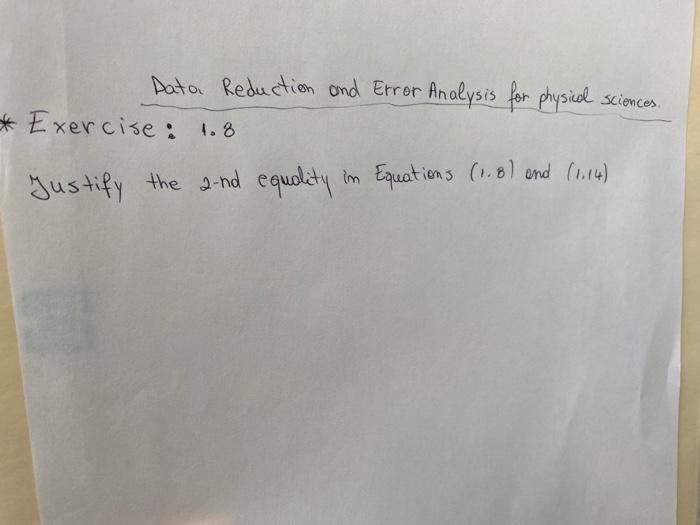 Data Reduction and Error Analysis for physical sciences.
* Exercise: 1.8
Justify the 2-nd equality in Equations (1.8) and (1.14)